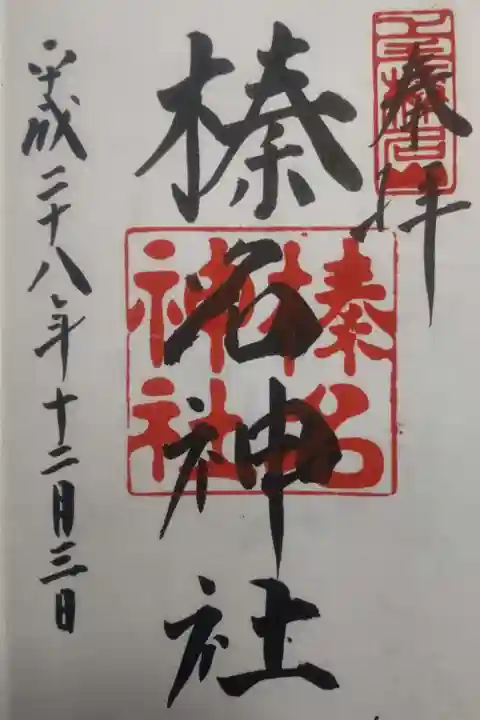 奉拝
上野榛名
榛名神社
榛名
神社
平成二十八年十二月三日